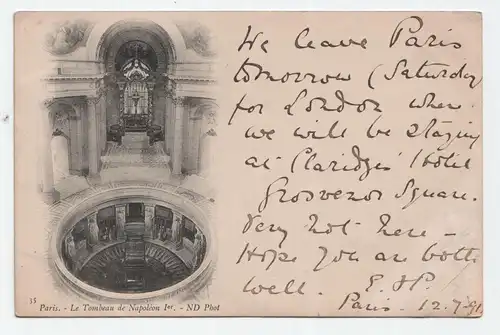 We leave Paris
tomorrow (Saturday
for London where
we will be staying
at Claridge's Hotel
Grosvenor Square.
Very hot here –
Hope you are both
well. E. H P.
Paris. 12.7.
15
Paris. - Le Tombeau de Napoléon Ier. - ND Phot